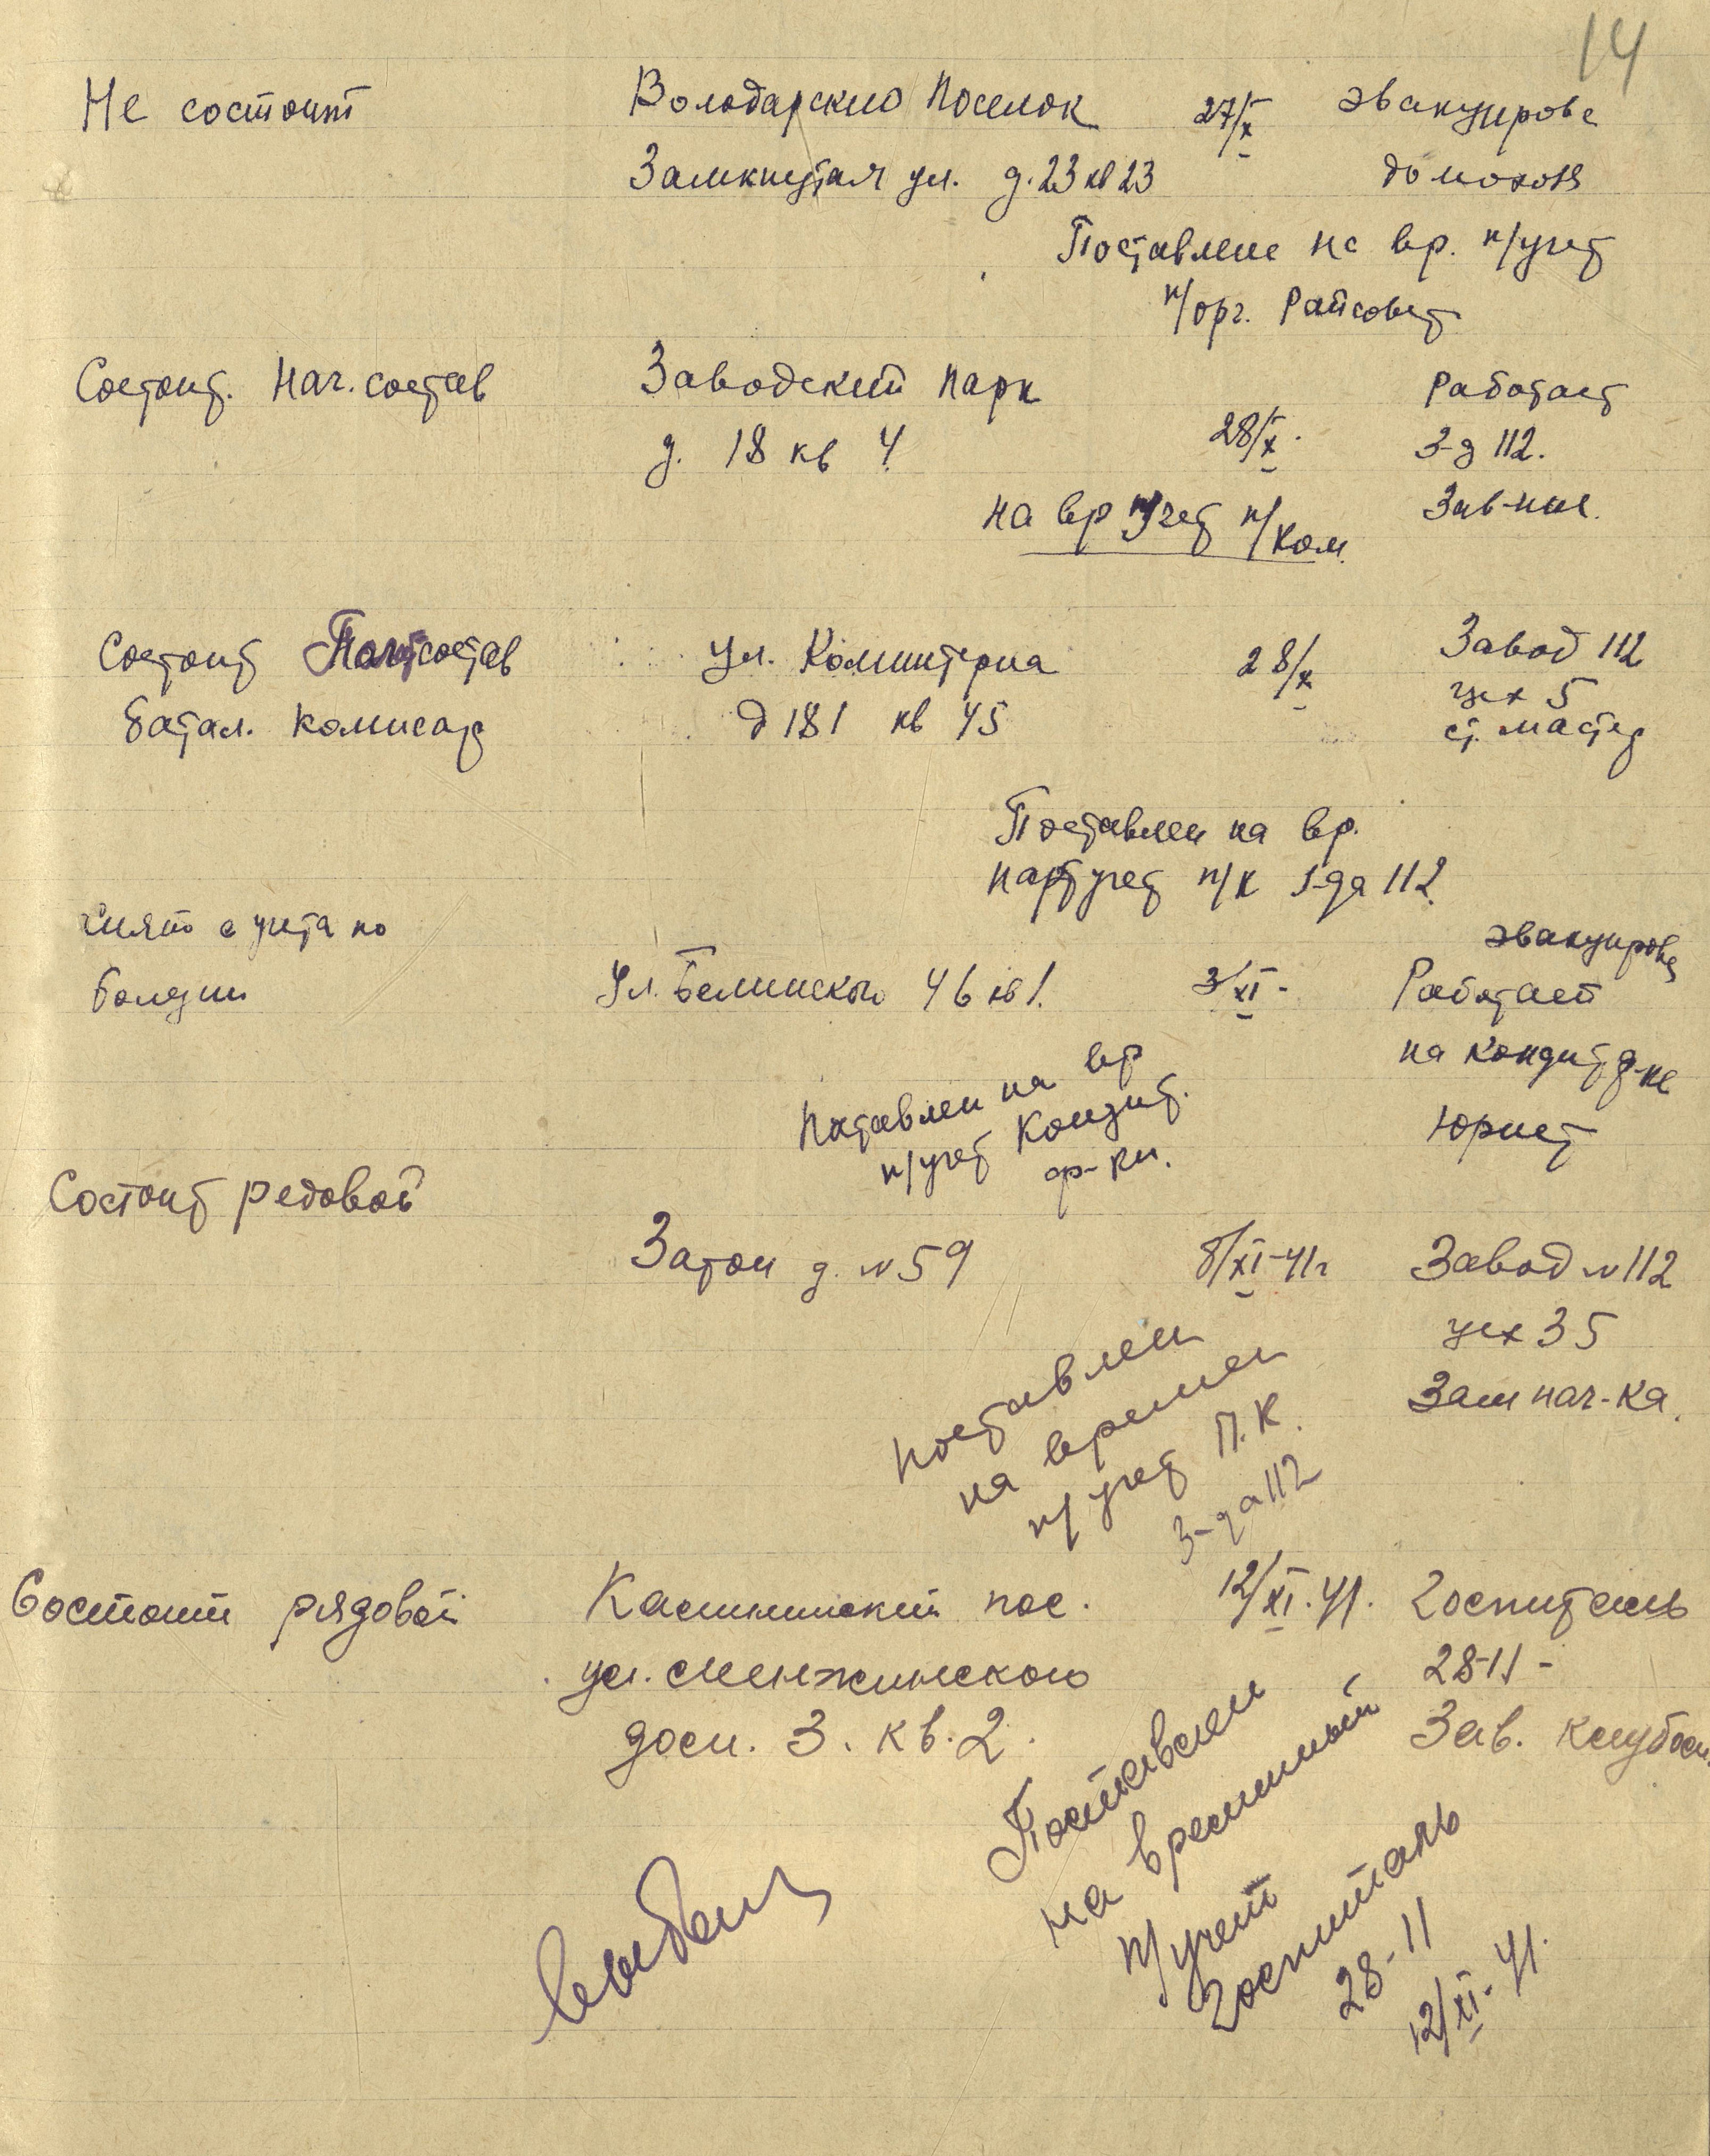 14
Не состоит
Володарского Поселок
27/X
эвакуирова
Замкнутая ул. д. 23 кв 23
домохоз
Поставлене на вр. п/учет
п/орг. Райсовет
Состоит. Нач. состав
Заводский парк
Работает
д. 18 кв 4
28/X.
З-д 112.
на вр п/учет п/ком.
Состоит Политсостав
ул. Коминтерна
28/X
Завод 112
цех 5
батал. комисар
д 181 кв 45
ст. мастер
Поставлен на вр.
партучет п/к з-да 112
Снят с учета по
эвакуирова
болезни
Ул. Белинского 46 кв 1.
3/XI-
Работает
на кондит ф-ке
Поставлен на вр
п/учет Кондит.
ф-ки.
Юрист
Состоит редовой
Затон д. № 59
8/XI-41г
Завод № 112
цех 35
Зам нач-ка.
поставлен
на времен
п/учет П.К.
З-да 112
Состоит рядовой
пос.
12/XI.41.
Госпиталь
ул. Менжинского
28-11-
дом. 3. кв. 2.
Зав. клубом.
Поставлен
на временный
п/учет
Госпиталь
28-11
12/XI-41.
выбыл